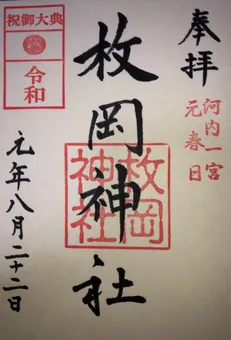 奉拝
河内一宮
元春日
枚岡神社
枚岡
神社
祝御大典
令和
元年八月二十二日